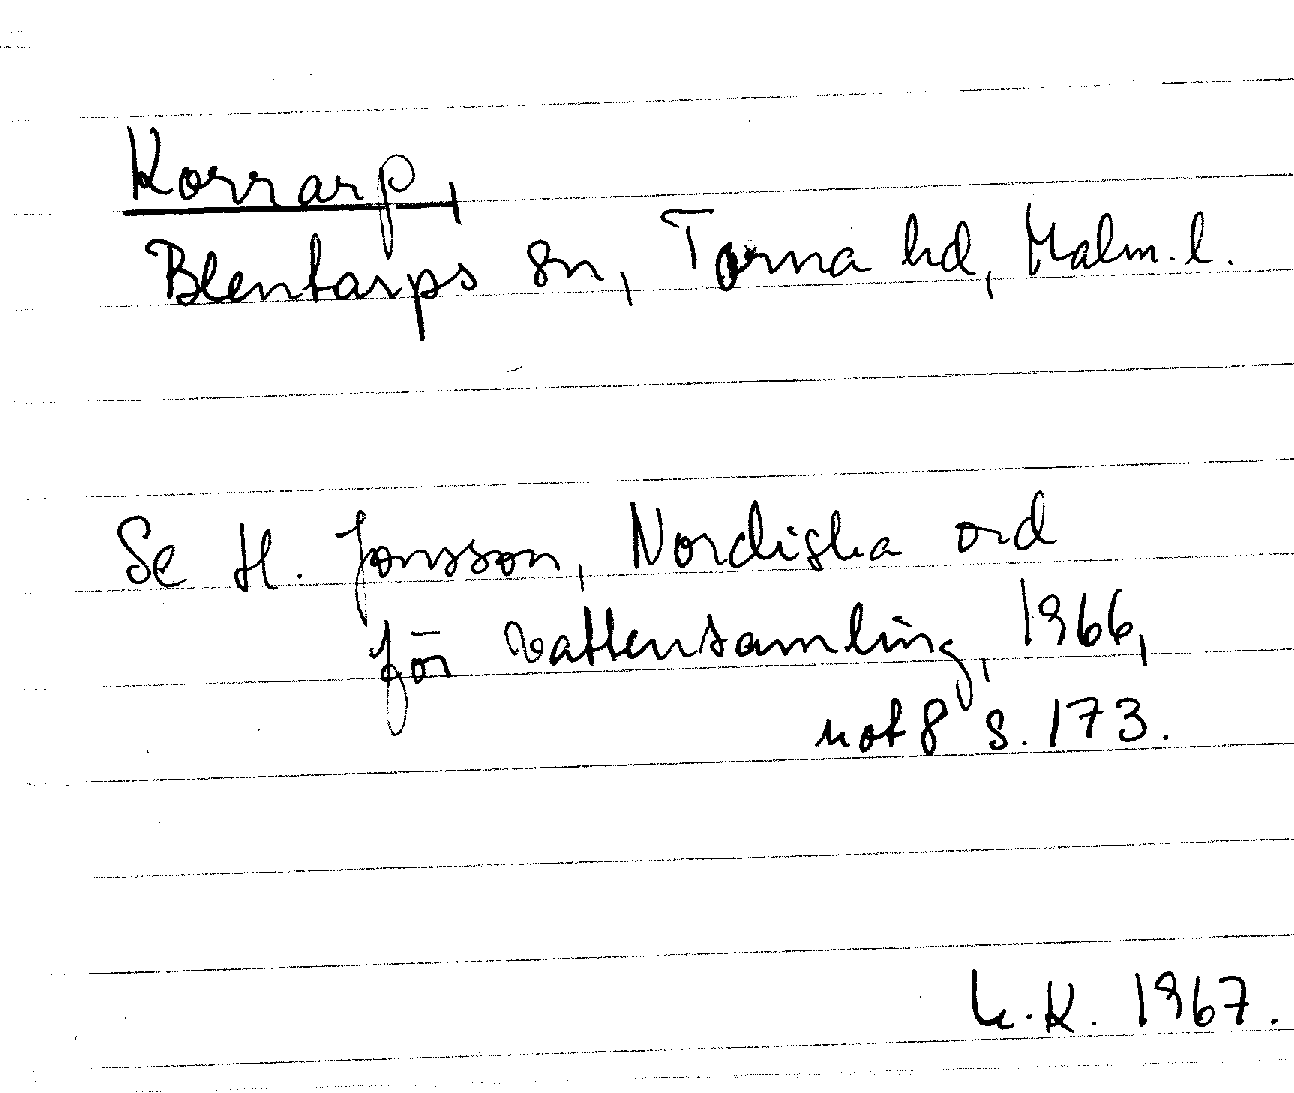 Korrarp,
Blentarps sn, Torna hd, Malm. l.
Se H. Jonsson, Nordiska ord
för vattensamling, 1966,
not 8 s. 173.
K. 1967.